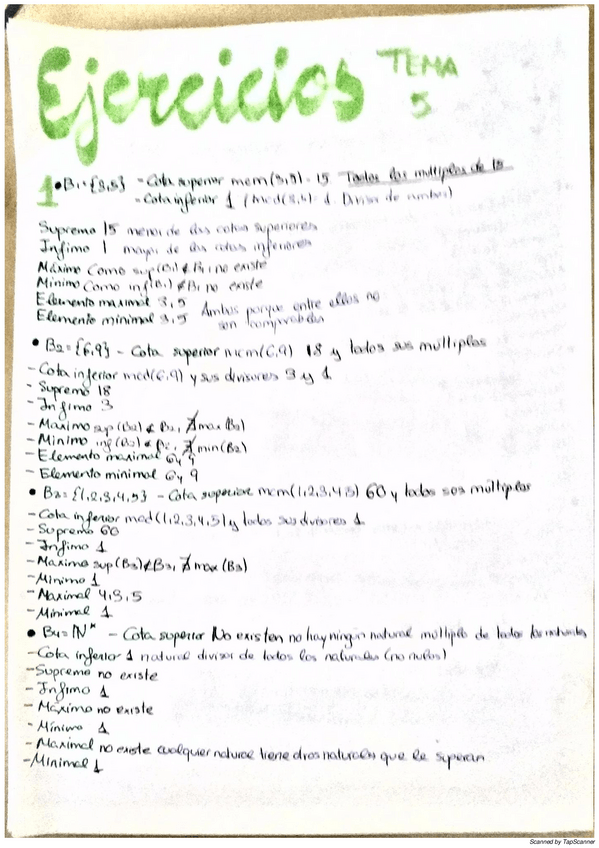 Ejercicios TEMA 5
1 • B₁={3,5} - Cota superior mcm(3,5)=15 Todos los múltiplos de 15
- Cota inferior 1 (mcd(3,5)=1. Divisor de ambos)
Supremo 15 menor de las cotas superiores
Ínfimo 1 mayor de las cotas inferiores
Máximo Como sup(B₁) ∉ B₁ no existe
Mínimo Como inf(B₁) ∉ B₁ no existe
Elemento maximal 3,5 Ambos porque entre ellos no
Elemento minimal 3,5 son comparables
• B₂={6,9} - Cota superior mcm(6,9) 18 y todos sus múltiplos
- Cota inferior mcd(6,9) y sus divisores 3 y 1
- Supremo 18
- Ínfimo 3
- Maximo sup(B₂) ∉ B₂, ∄ max(B₂)
- Minimo inf(B₂) ∉ B₂, ∄ min(B₂)
- Elemento maximal 6 y 9
- Elemento minimal 6 y 9
• B₃={1,2,3,4,5} - Cota superior mcm(1,2,3,4,5) 60 y todos sus múltiplos
- Cota inferior mcd(1,2,3,4,5) y todos sus divisores 1
- Supremo 60
- Ínfimo 1
- Maximo sup(B₃)∉B₃, ∄ max(B₃)
- Minimo 1
- Maximal 4,3,5
- Minimal 1
• B₄=ℕ* - Cota superior No existen no hay ningún natural múltiplo de todos los naturales
- Cota inferior 1 natural divisor de todos los naturales (no nulos)
- Supremo no existe
- Ínfimo 1
- Máximo no existe
- Mínimo 1
- Maximal no existe cualquier natural tiene otros naturales que le superan
- Minimal 1
Scanned by TapScanner